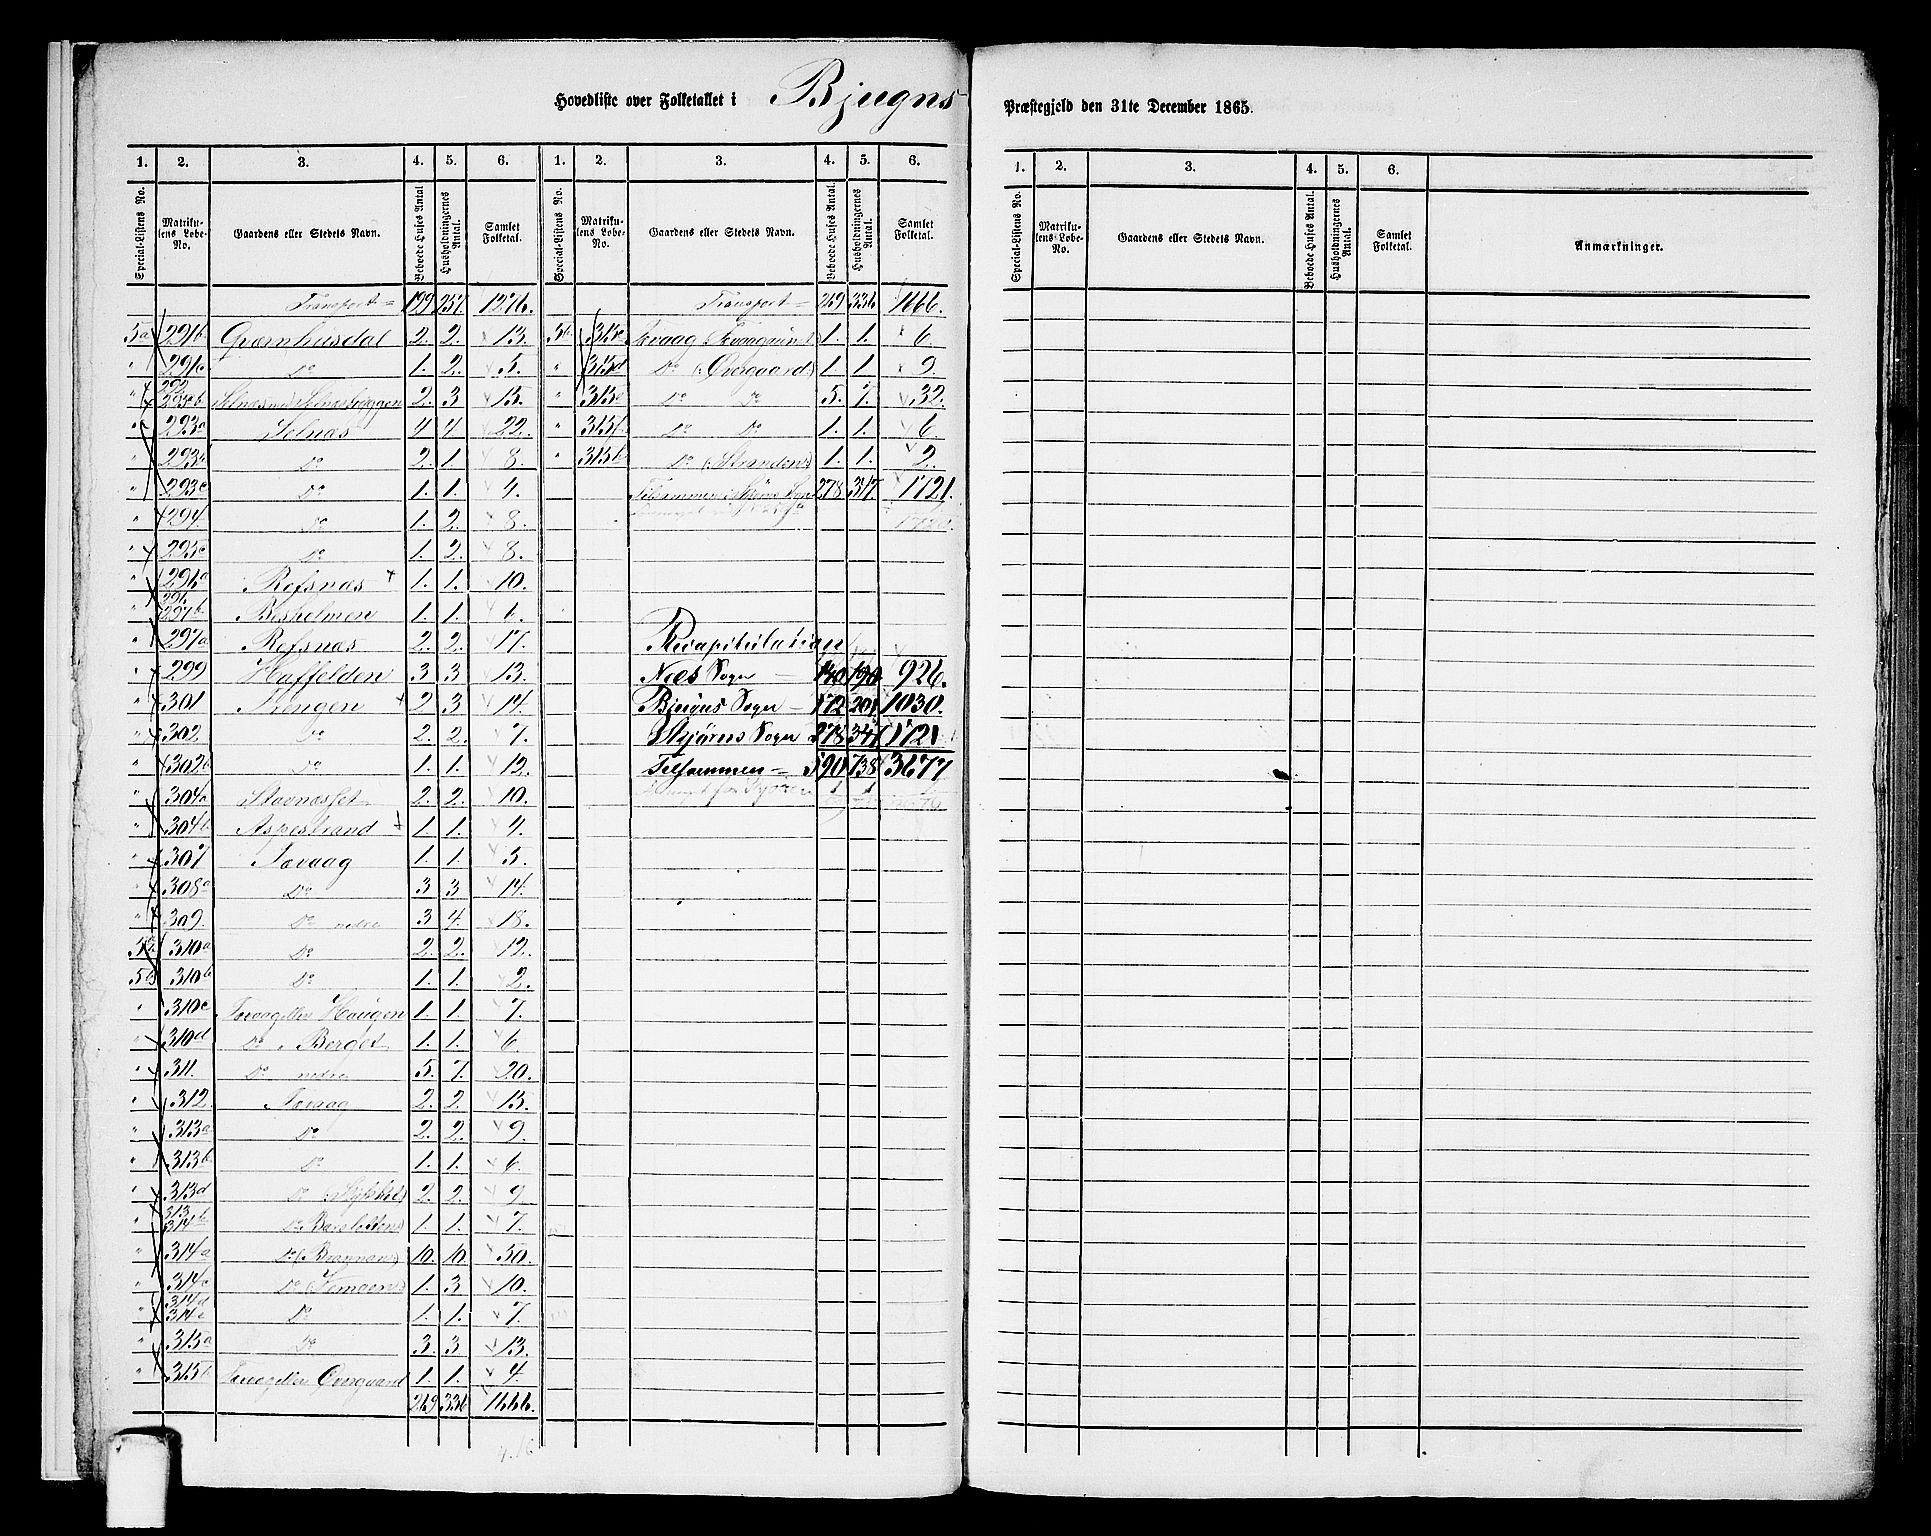 Hovedliste over Folketallet i Bjugns Præstegjeld den 31te December 1865.
1. 2. 3. 4. 5. 6. 1. 2. 3. 4. 5. 6.
Special-Listens No. Matrikulens Løbe-No. Gaardens eller Stedets Navn. Beboede Huses Antal. Husholdningernes Antal. Samlet Folketal. Special-Listens No. Matrikulens Løbe-No. Gaardens eller Stedets Navn. Beboede Huses Antal. Husholdningernes Antal. Samlet Folketal.
Transport = 199 257. 1276.
5a 291b Grønhusdal 2. 2. 13.
" 291c Do 1. 2. 5.
" 292 293b Selnæs med Selnæshaggen 2. 3 15.
" 293a Selnæs 4 4 22.
" 293 Do 2. 1. 8.
" 293c Do 1. 1. 4.
" 294 Do 1. 2. 8.
" 295c Do 1. 2. 8.
" 296a Refsnæs + 1. 1. 10.
" 296 297b Beskelmen 1. 1. 6.
" 297a Refsnæs 2. 2. 17.
" 299 Haffelden 3 3 13.
" 301 Kengen + 2 3 14.
" 302 Do 2. 2. 7.
" 302b Do 1. 1. 12.
" 304a Stavnæsset 2. 2. 10.
" 304b Aspestrand + 1. 1. 4.
" 307 Tevaag 1. 1. 5.
" 308a Do 3 3 14.
" 309. Do nedre 3 4. 18.
310a Do 2. 2. 12.
5b 310b Do 1. 1. 2.
" 310c Haugen 1. 1. 7.
" 310d Do Berget 1. 1. 6
" 311. Do nedre 5. 7. 20.
" 312. 2. 2. 13.
" 313a Do 2. 2. 9.
" 313b Do 1. 1. 6.
" 313d Do 2. 2. 9
" 313 314b Do 1. 1. 7.
" 314a Do 10. 10. 50.
" 314c Do 1. 3 10.
" 314d 314e Do 1. 1. 7.
" 315a Do 3. 3 13.
" 315b Øvergaard 1. 1. 4.
269 336 1666.
Transport = 269 336 1666.
5b. 315c 1. 1. 6.
" 315d Do (Øvergaard) 1. 1 9.
" 315e Do Do 5. 7. 32.
" 315f Do Do 1. 1. 6.
" 315b Do (Stranden) 1. 1. 2.
Tilsammen i 278 347. 1721.
Recapitulation
Næs Sogn — 140 190 926.
Bjugns Sogn — 172 201 1030.
Skjørns Sogn 278 347 1721
Tilsammen = 590 738 3677
Præstegjeld den 31te December 1865.
1. 2. 3. 4. 5. 6.
Special-Listens No. Matrikulens Løbe-No. Gaardens eller Stedets Navn. Beboede Huses Antal. Husholdningernes Antal. Samlet Folketal. Anmærkninger.